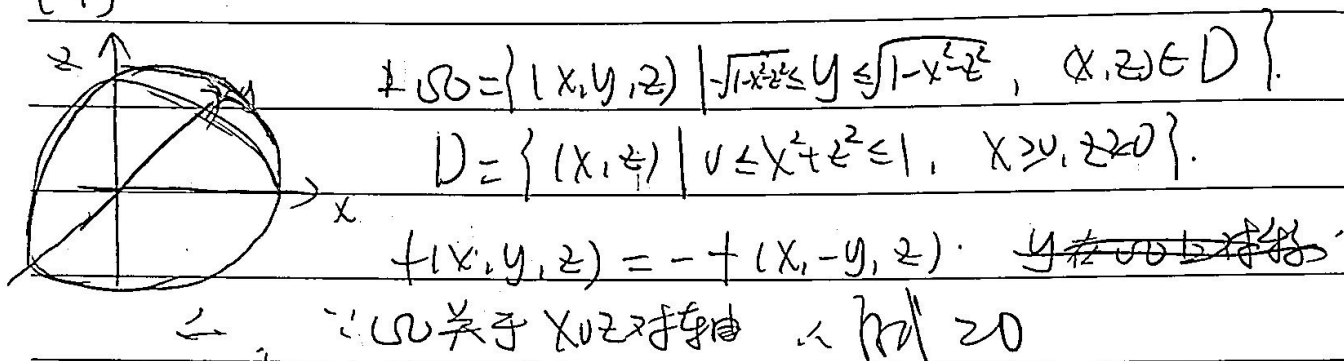 Ω={(x,y,z)|-√(1-x²-z²)≤y≤√(1-x²-z²), (x,z)∈D}.
z
D={(x,z)|0≤x²+z²≤1, x≥0, z≥0}.
x
f(x,y,z)=-f(x,-y,z).
∵Ω关于xoz对称 ∴ 原式=0